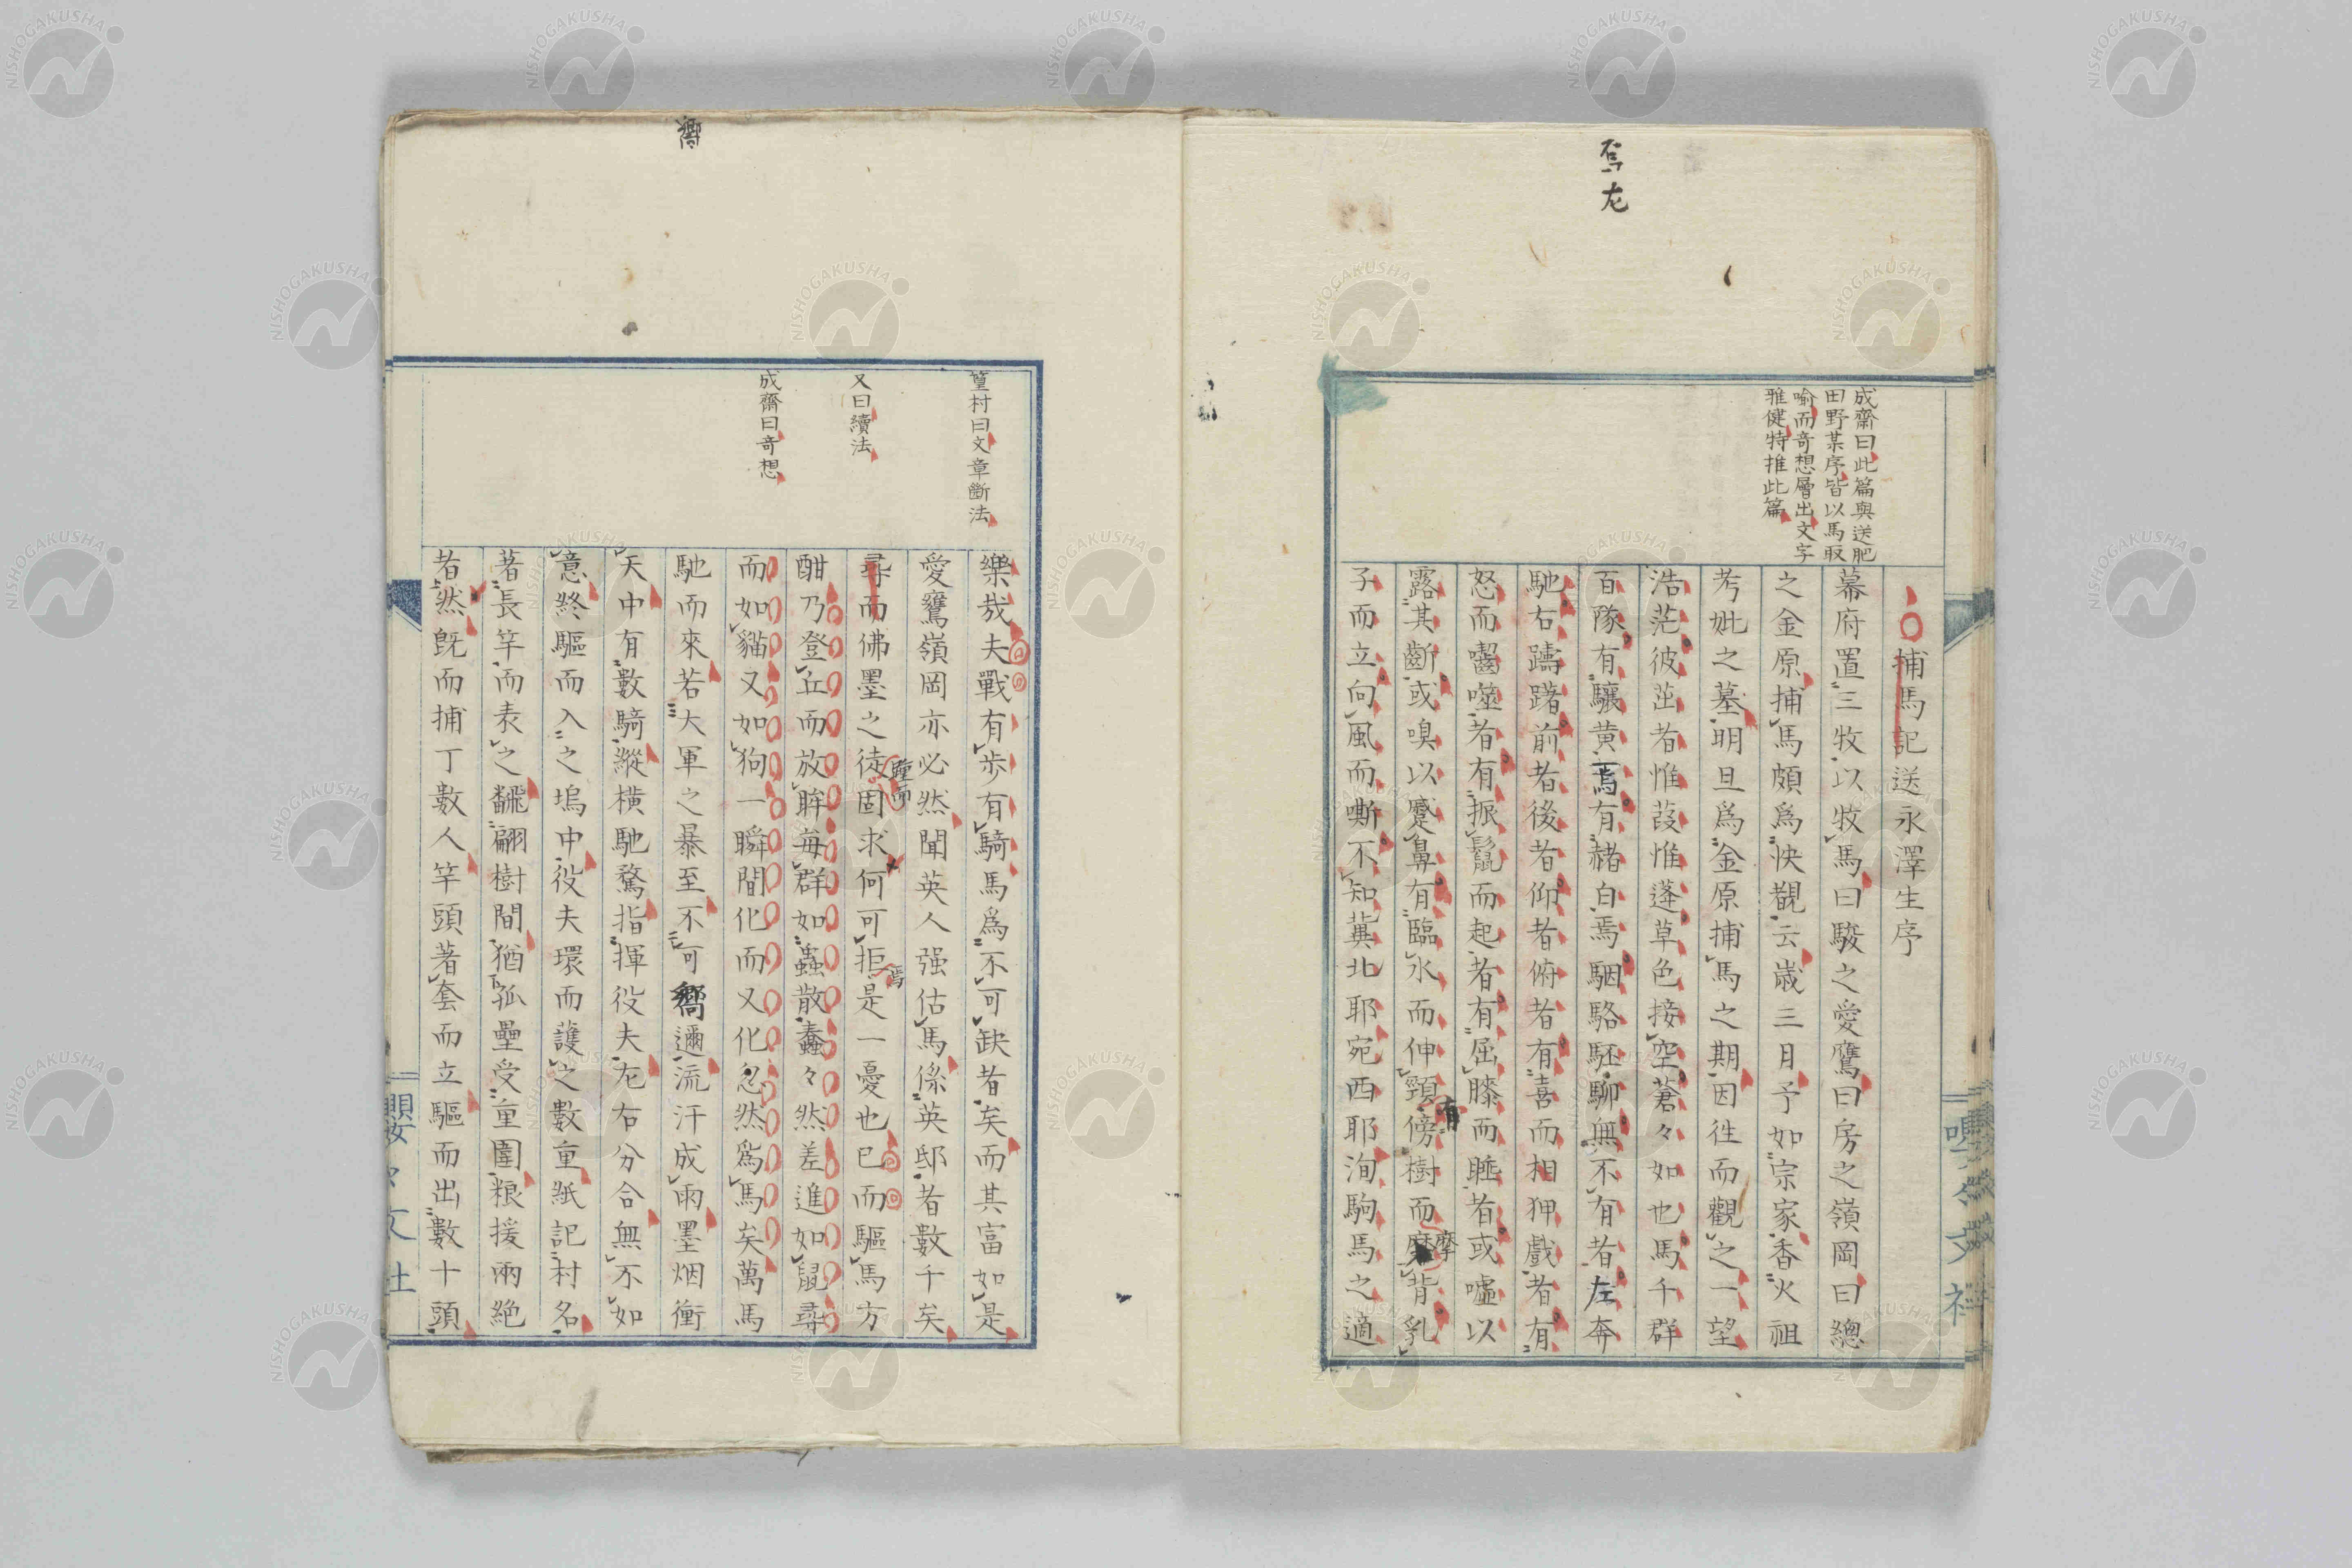 焉左
成齋曰此篇與送肥
田野某序皆以馬取
喻而奇想層出文字
雅健特推此篇
捕馬記送永澤生序
幕府置三牧以牧馬曰駿之愛鷹曰房之嶺岡曰總
之金原捕馬頗爲快觀云歲三月予如宗家香火祖
考妣之墓明旦爲金原捕馬之期因往而觀之一望
浩茫彼茁者惟葭惟蓬草色接空蒼々如也馬千群
百隊有驤黄焉有赭白焉駰駱駓騂無不有者左奔
馳右躊躇前者後者仰者俯者有喜而相狎戲者有
怒而嚙噬者有振鬣而起者有屈膝而睡者或噓以
露其齗或嗅以蹙鼻有臨水而伸頸有傍樹而摩背乳
子而立向風而嘶不知冀北耶宛西耶洵駒馬之適
篁村曰文章斷法
又曰續法
成齋曰奇想
樂哉夫戰有歩有騎馬爲不可缺者矣而其富如是
愛鷹嶺岡亦必然聞英人强估馬係英邸者數千矣
尋而佛墨之徒踵而固求何可拒焉是一憂也已而驅馬方
酣乃登丘而放眸每群如蟲散蠢々然差進如鼠尋
而如貓又如狗一瞬間化而又化忽然爲馬矣萬馬
馳而來若大軍之暴至不可嚮邇流汗成雨墨烟衝
天中有數騎縱横馳騖指揮役夫左右分合無不如
意終驅而入之塢中役夫環而護之數重紙記村名
著長竿而表之翻翩樹間猶孤壘受重圍粮援兩絶
者然既而捕丁數人竿頭著套而立驅而出數十頭
嚮